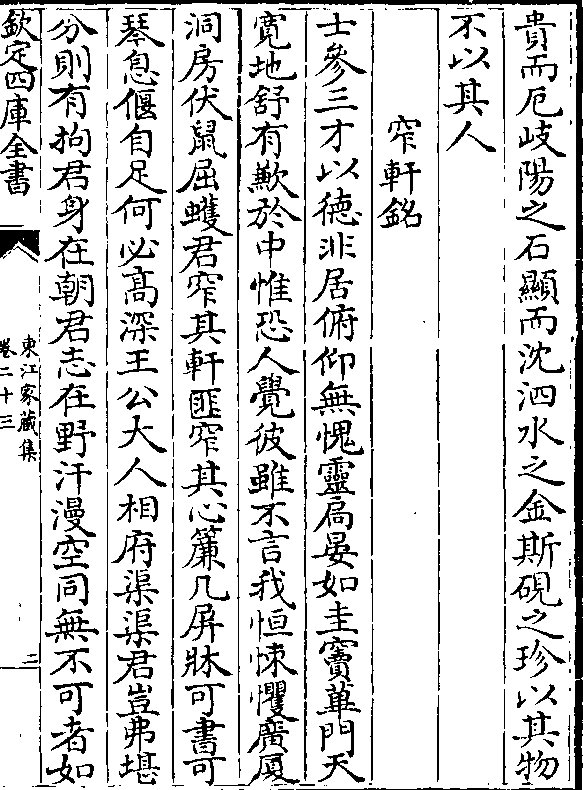 貴而厄岐陽之石顯而沈泗水之金斯硯之珍以其物
不以其人
窄軒銘
士參三才以德非居俯仰無愧靈扄晏如圭竇蓽門天
寛地舒有歉於中惟恐人覺彼雖不言我恒悚懼廣厦
洞房伏鼠屈蠖君窄其軒匪窄其心簾几屏牀可書可
琴息偃自足何必髙深王公大人相府渠渠君豈弗堪
分則有拘君身在朝君志在野汗漫空同無不可者如
欽定四庫全書
東江家藏集
卷二十三
二